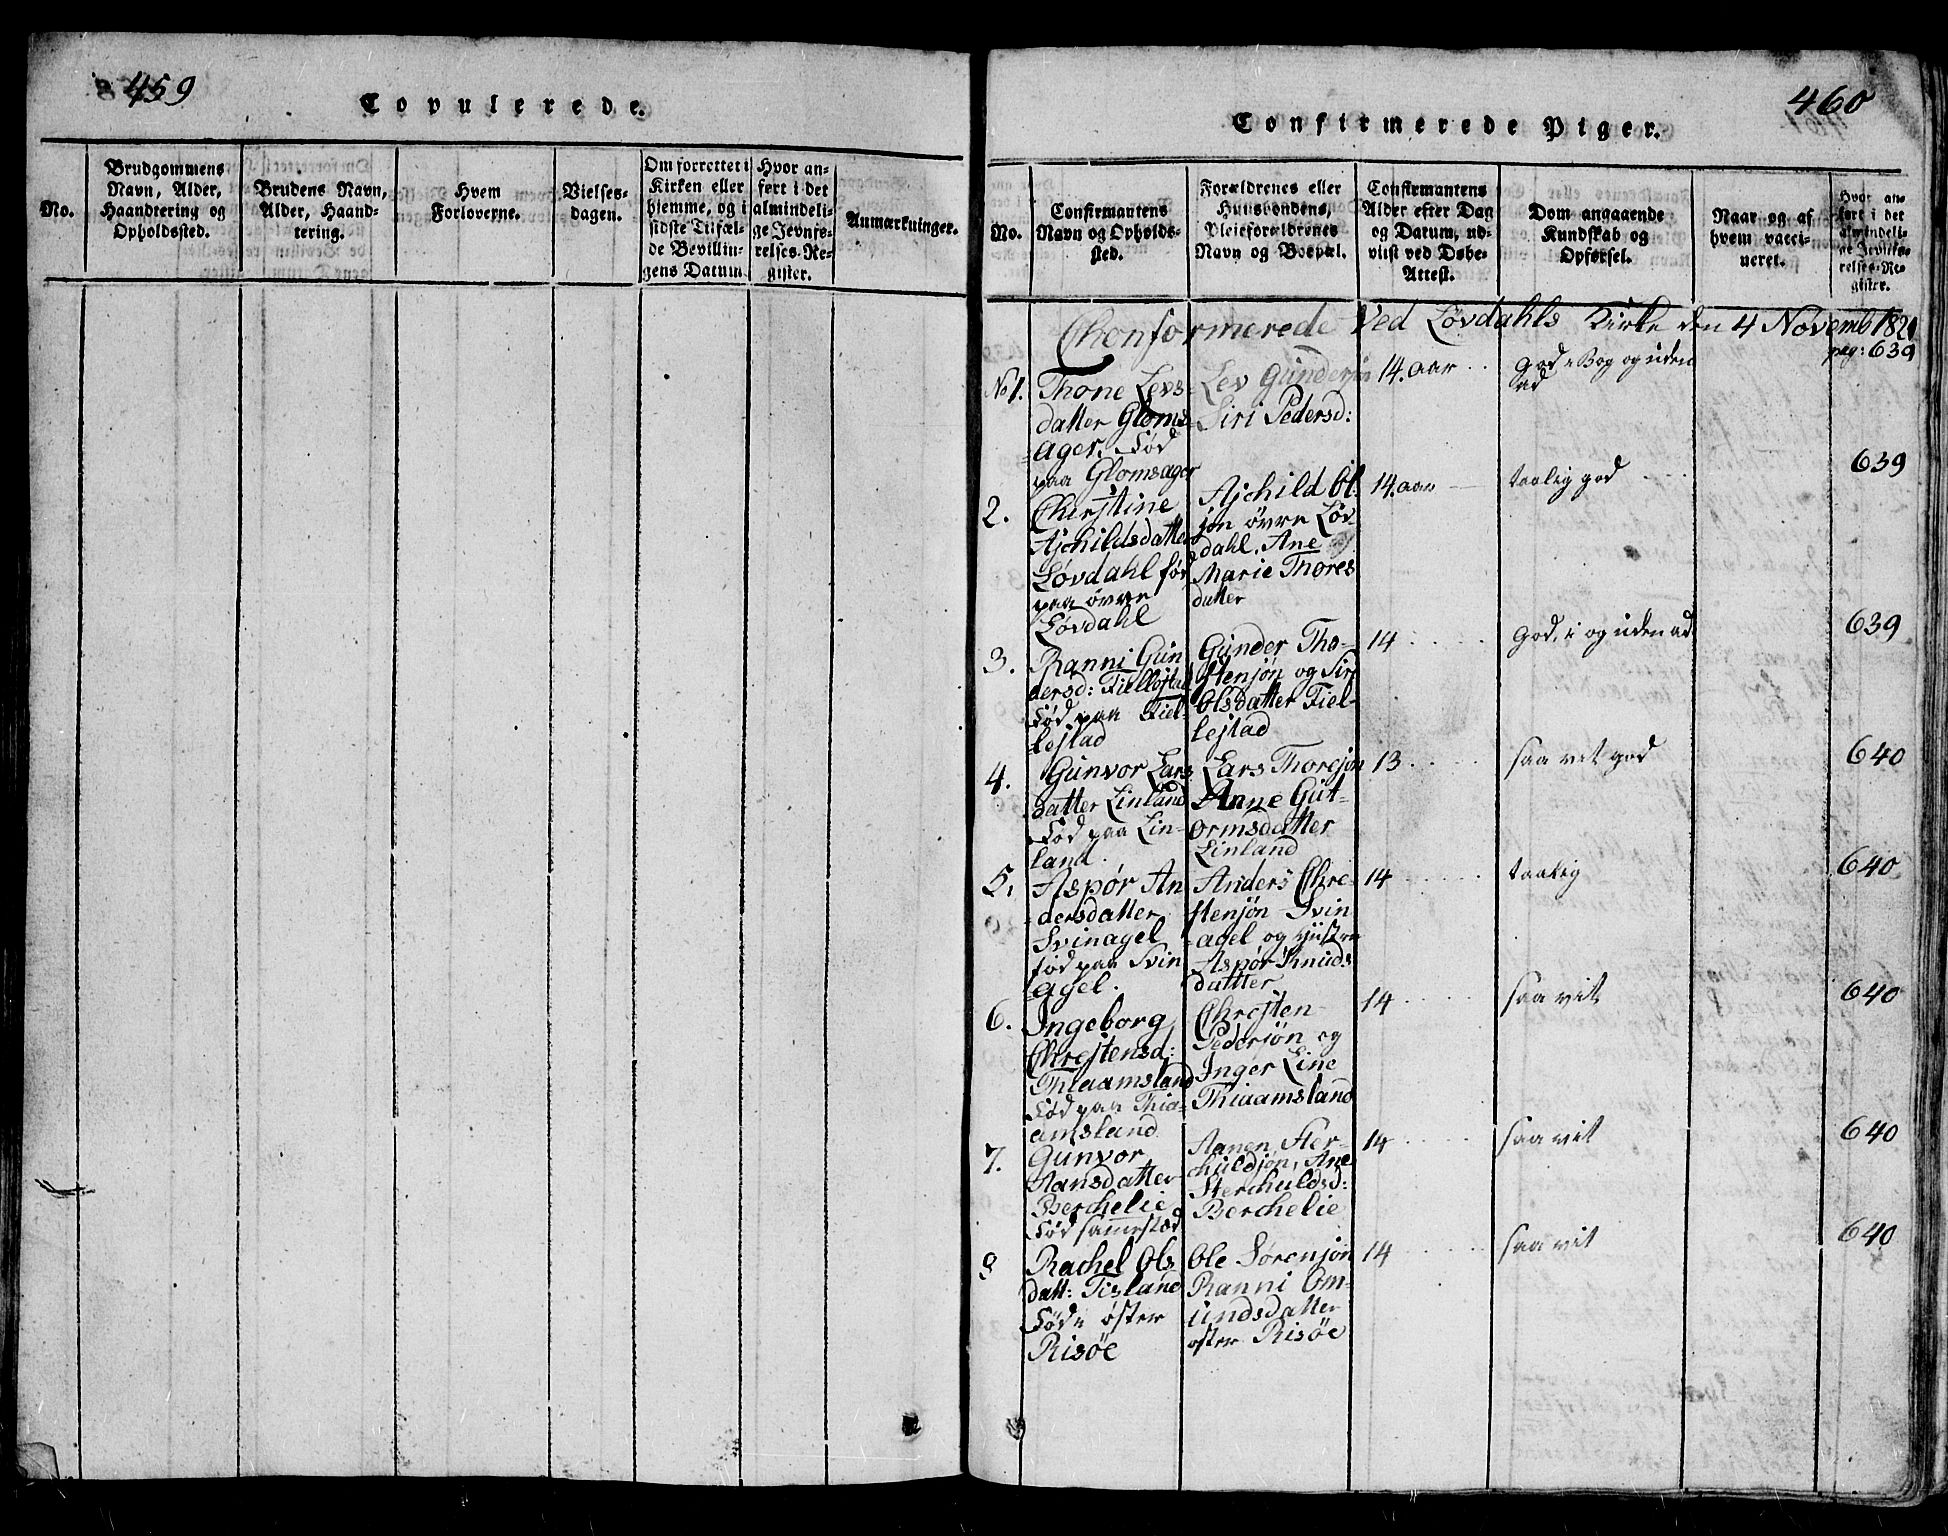 459
Copulerede.
No.
Brudgommens
Navn, Alder,
Haandtering og
Opholdssted.
Brudens Navn,
Alder, Haand-
tering.
Hvem
Forloverne.
Vielses-
dagen.
Om forrettet i
Kirken eller
hjemme, og i
sidste Tilfæl-
de Bevillin-
gens Datum.
Hvor an-
ført i det
almindeli-
ge Jevnfø-
relses-Re-
gister.
Anmærkninger.
460
Confirmerede Piger.
No.
Confirmantens
Navn og Opholds-
sted.
Forældrenes eller
Huusbondens,
Pleieforældrenes
Navn og Boepæl.
Confirmantens
Alder efter Dag
og Datum, ud-
viist ved Døbe-
Attest.
Dom angaaende
Kundskab og
Opførsel.
Naar og af
hvem vacci-
neret.
Hvor an-
ført i det
almindeli-
ge Jevnfø-
relses-Re-
gister.
Chonformerede Ved Løvdahls Kirke den 4 Novemb 1821
No 1.
Thone Levs-
datter Gloms
-ager. Fød
paa Glomsager
Lev Gundersøn
Siri Pedersd:
14. aar
God i Bog og uden
ad
pag: 639
2.
Cherstine
Ajchildsdatter
Løvdahl fød
paa øvre
Løvdahl
Ajchild Ol
søn øvre Løv
dahl, Ane
Marie Thores
datter
14. aar
taalig god
639
3.
Ranni Gun
dersd: Fiellestad
Fød paa Fiel-
lestad
Gunder Tho-
stensøn og Siri
Olsdatter Fiel-
lestad
14
God, i og uden ad
639
4.
Gunvor Lars
datter Linland
Fød paa Lin-
land.
Lars Thoresøn
Anne Gut-
ormsdatter
Linland
13
saa vit god
640
5.
Aspør An
dersdatter
Svinagel
fød paa Svin
agel.
Anders Chre-
stensøn Svin
-agel og hustru
Aspør Knuds
datter
14
taalig
640
6.
Ingeborg
Chrestensd:
Thiaamsland
Fød paa Thia-
amsland
Chresten
Pedersøn og
Inger Line
Thiaamsland
14
saa vit
640
7.
Gunvor
Aansdatter
Berchelie
Fød sammested
Aanen Ster-
chuldsøn, Ane
Sterchuldsd:
Berchelie
14
saa vit
640
8
Rachel Ols
datt: Tisland
Fød i øster
Risøe
Ole Sørensøn
Ranni Om-
undsdatter
øster Risøe
14
saa vit
640